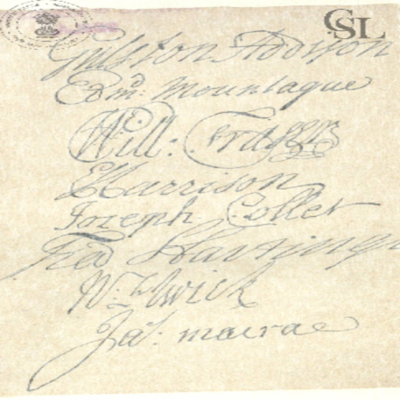 CSL
Gulston Addison
Edmd: Mountague
Will: Fraser
E Harrison
Joseph Collet
Fra Hastings
N: Elwick
Jas: macrae